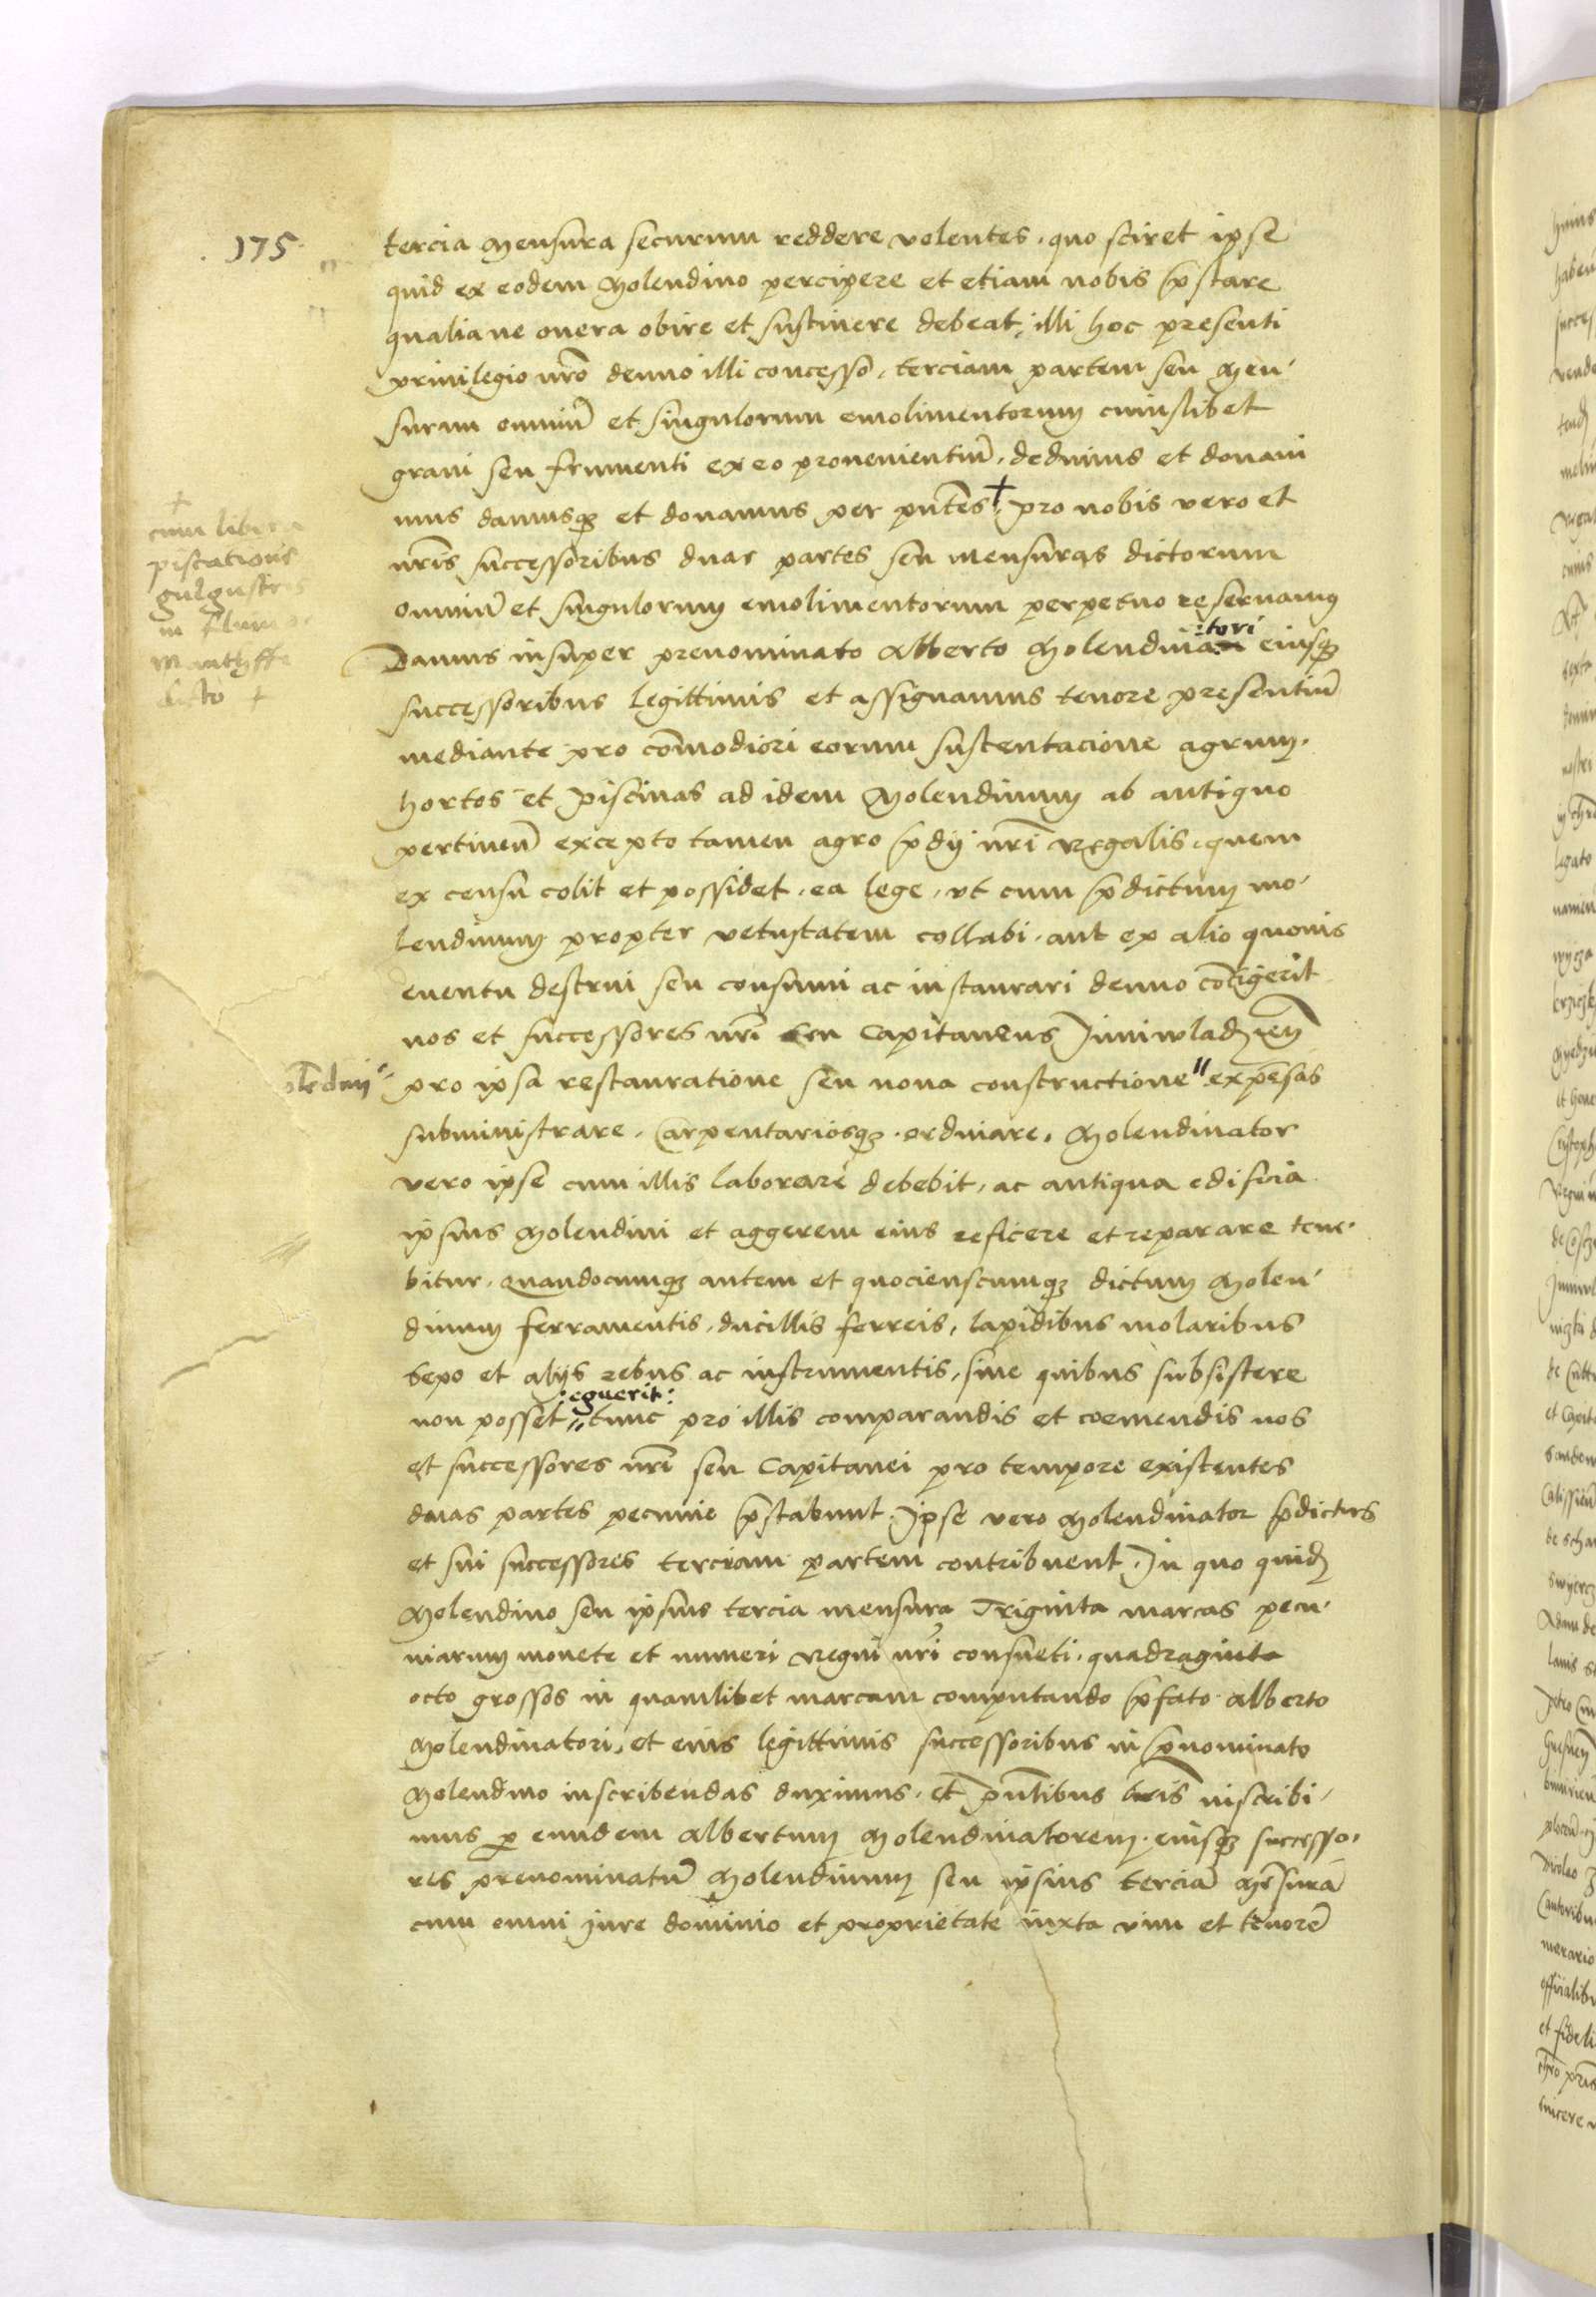 175
tercia Mensura securum reddere volentes, quo sciret ipse
quid ex eodem Molendino percipere et etiam nobis p̄stare
qualia ne onera obire et sustinere debeat, illi hoc presenti
priuilegio nr̄o denuo illi concesso, terciam partem seu Men-
suram omniū et singulorum emolimentorum cuiuslibet
grani seu frumenti ex eo prouenientiū, dedimus et donaui
mus damusq3 et donamus per pn̄tes + pro nobis vero et
+
cum libera
piscationis
gulgustris
in flumine
Manthffe
dicto +
nr̄is successoribus duas partes seu mensuras dictorum
omniū et singulorum emolimentorum perpetuo reseruamus
Damus insuper prenominato Alberto Molendinatori eiusq3
successoribus legittimis et assignamus tenore presentiū
mediante pro com̄odiori eorum sustentacione agrum,
hortos et piscinas ad idem Molendinum ab antiquo
pertinen̄ excepto tamen agro p̄dij nr̄i Regalis, quem
ex censu colit et possidet, ea lege, vt cum p̄dictum mo-
lendinum propter vetustatem collabi, aut ex alio quouis
euentu destrui seu consumi ac instaurari denuo cōtigerit
nos et successores nr̄i seu Capitaneus Juniwladien̄
pro ipsa restauratione seu noua constructione " expēsas
subministrare, Carpentariosq3 ordinare, Molendinator
vero ipse cum illis laborare debebit, ac antiqua edificia
ipsius Molendini et aggerem eius reficere et reparare tene-
bitur, Quandocumq3 autem et quocienscumq3 dictum Molen-
dinum ferramentis, ducillis ferreis, lapidibus molaribus
sepo et alijs rebus ac instrumentis, sine quibus subsistere
:eguerit:
non posset, " tunc pro illis comparandis et coemendis nos
et successores nr̄i seu Capitanei pro tempore existentes
duas partes pecunie p̄stabunt, Ipse vero Molendinator p̄dictus
et sui successores terciam partem contribuent, In quo quidē
Molendino seu ipsius tercia mensura Triginta marcas pecu-
niarum monete et numeri Regni nr̄i consueti, quadraginta
octo grossos in quamlibet marcam computando p̄fato Alberto
Molendinatori, et eius legittimis successoribus in p̄nominato
Molendino inscribendas duximus, et pn̄tibus lr̄is inscribi-
mus p eundem Albertum Molendinatorem, eiusq3 successo-
res prenominatū Molendinum seu ipsius terciā Mēsurā
cum omni iure dominio et proprietate iuxta vim et tenorē